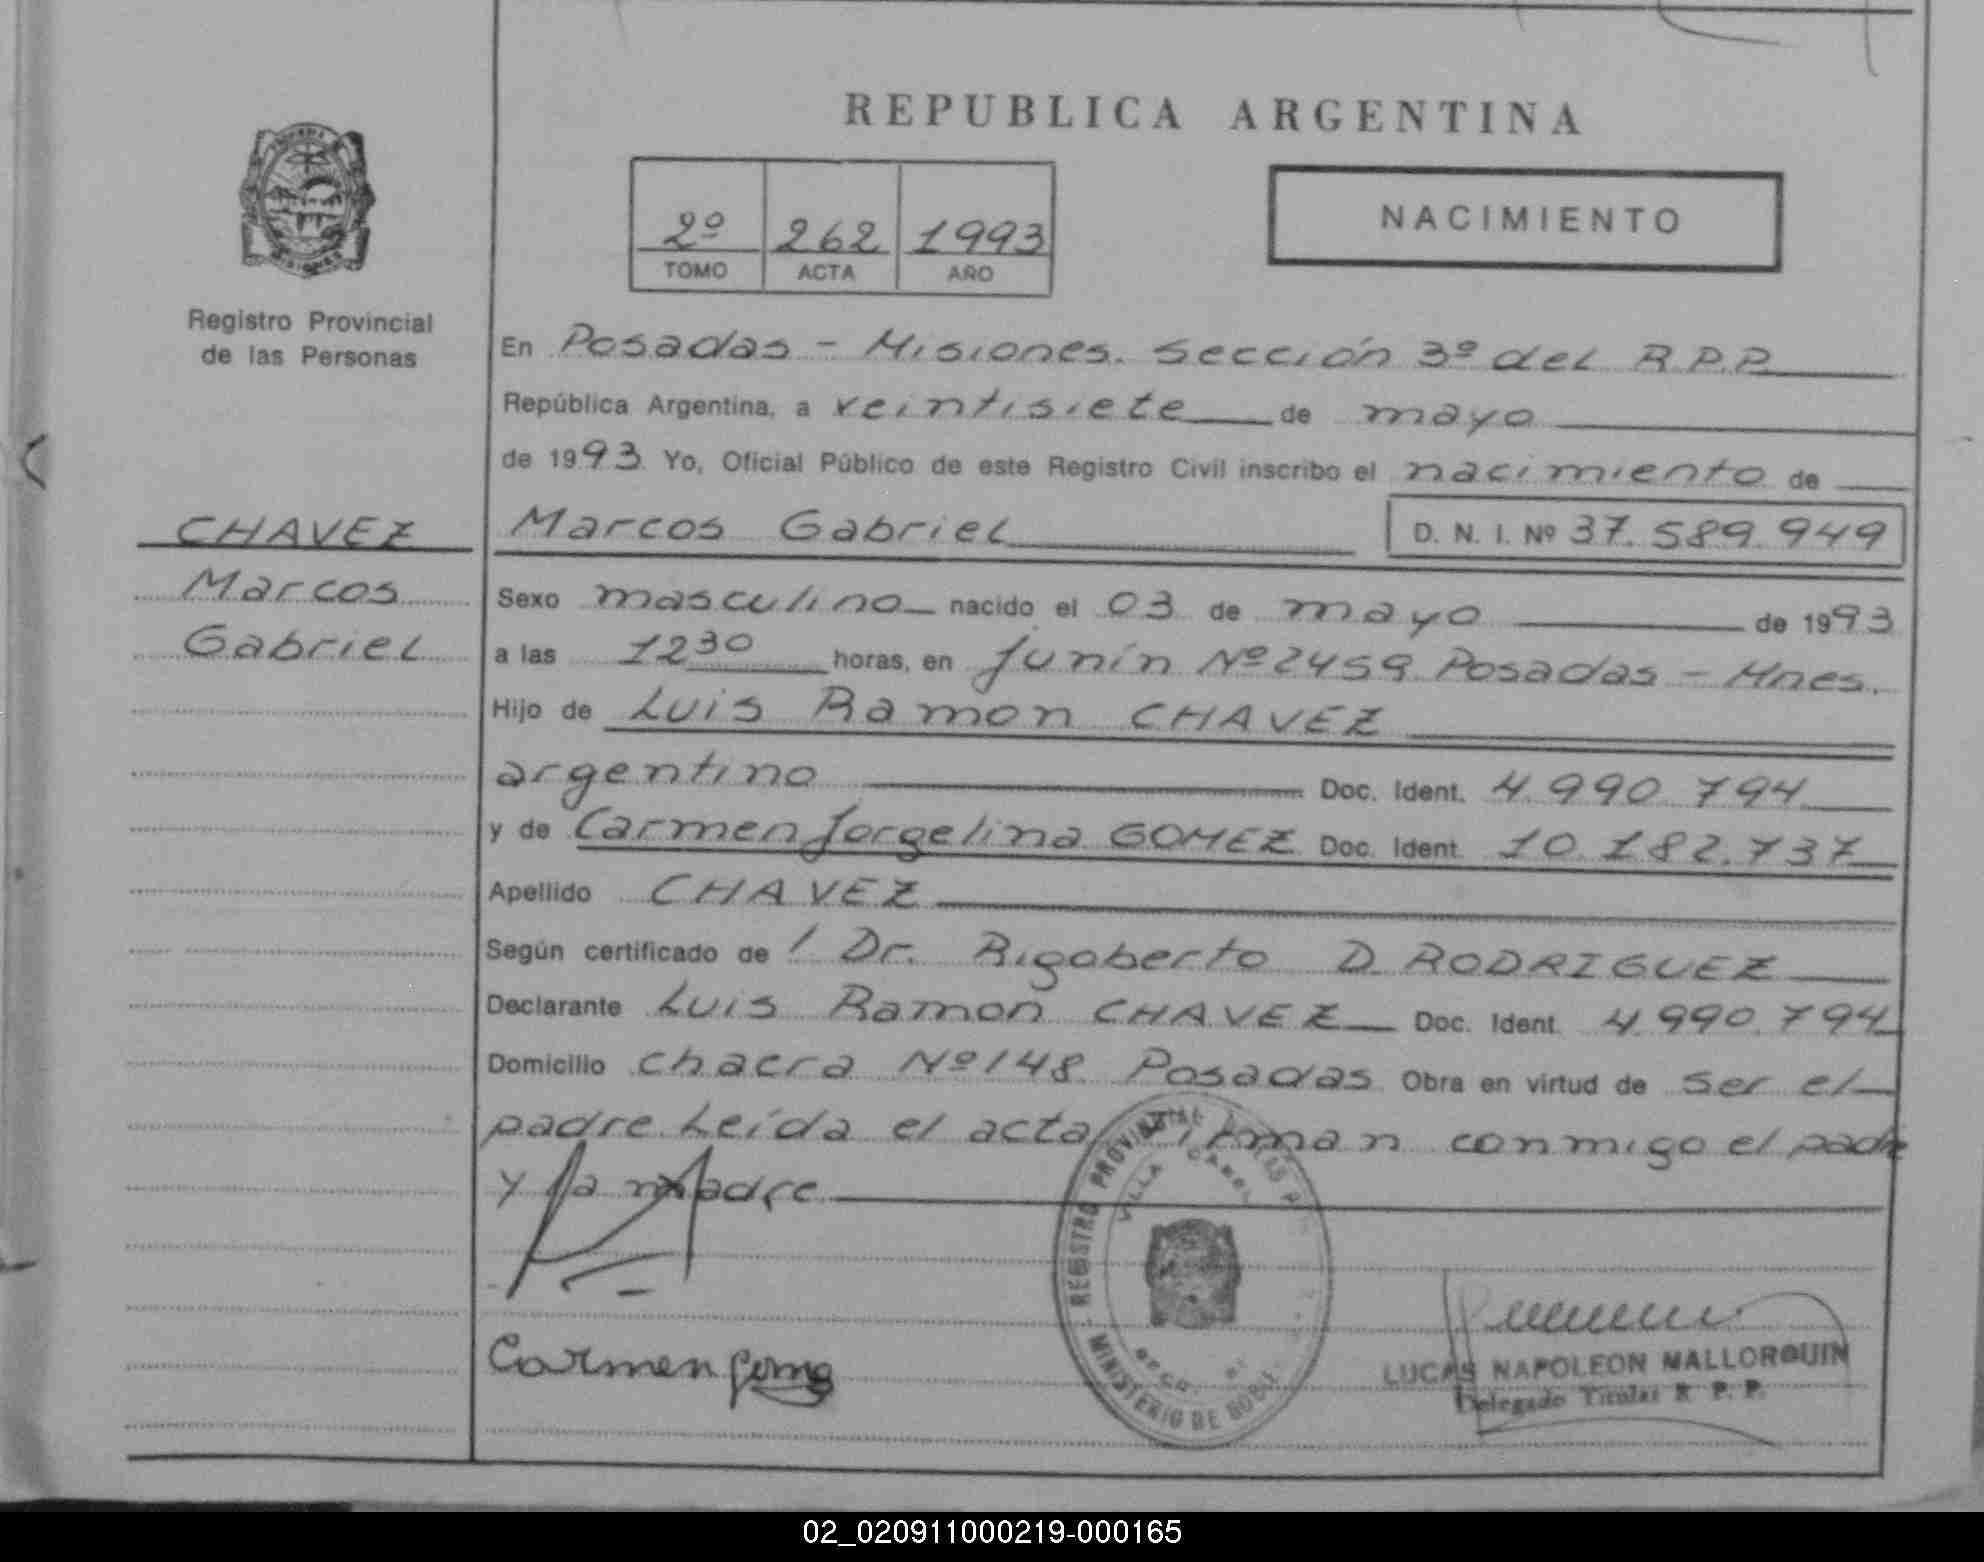 REPUBLICA ARGENTINA
2º 262 1993
TOMO ACTA AÑO
NACIMIENTO
Registro Provincial
de las Personas
En Posadas - Misiones. Sección 3º del R.P.P.
República Argentina, a veintisiete de mayo
de 1993 Yo, Oficial Público de este Registro Civil inscribo el nacimiento de
CHAVEZ
Marcos
Gabriel
Marcos Gabriel D. N. I. Nº 37.589.949
Sexo masculino nacido el 03 de mayo de 1993
a las 12 30 horas, en Junín Nº 2459 Posadas - Mnes.
Hijo de Luis Ramon CHAVEZ
argentino Doc. Ident. 4.990.794
y de Carmen Jorgelina GOMEZ Doc. Ident. 10.182.737
Apellido CHAVEZ
Según certificado de / Dr. Rigoberto D. RODRIGUEZ
Declarante Luis Ramon CHAVEZ Doc. Ident. 4.990.794
Domicilio chacra Nº 148 Posadas Obra en virtud de ser el
padre Leída el acta firman conmigo el padre
y la madre
REGISTRO PROVINCIAL DE LAS
VILLA CABEL
MINISTERIO DE GOB
Carmen Gomez
LUCAS NAPOLEON MALLORQUIN
Delegado Titular R. P. P.
02_020911000219-000165